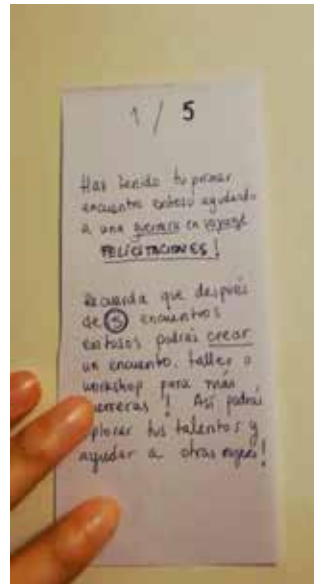 1 / 5
Has tenido tu primer
encuentro exitoso ayudando
a una guerrera en voyage
FELICITACIONES!
Recuerda que después
de 5 encuentros
exitosos podrás crear
un encuentro, taller o
workshop para más
guerreras! Así podrás
explorar tus talentos y
ayudar a otras mujeres!